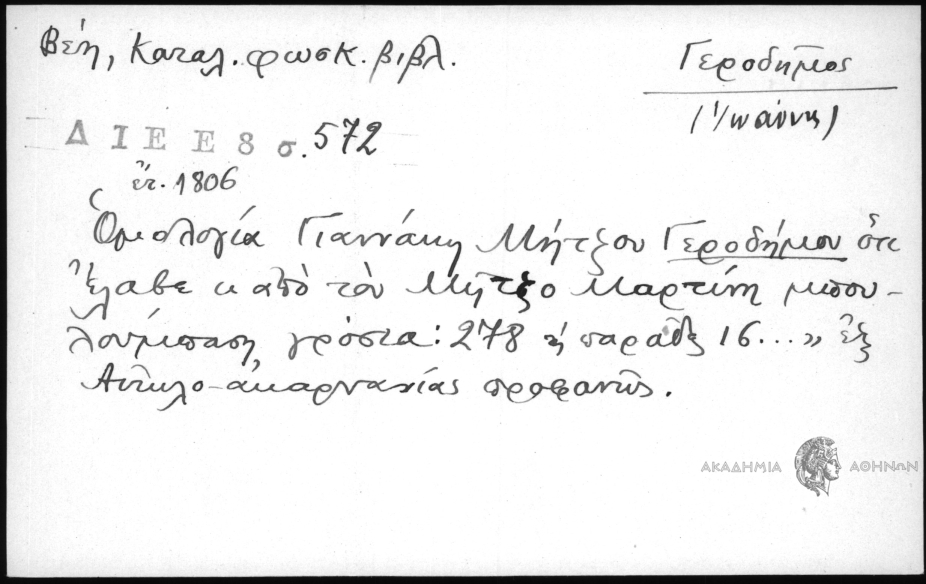 Βέη, Καταλ. φωσκ. βιβλ.
Γεροδήμος
(Ἰωάννης)
Δ Ι Ε Ε 8 σ. 572
ἔτ. 1806
Ὁμολογία Γιαννάκη Μήτζου Γεροδήμου ὅτι
ἔλαβε κ ἀπὸ τὸν Μῆτζο Μαρτίνη μπου-
λούμπαση γρόσια: 278 ἡ παράδες 16...» ἐξ
Αἰτωλο-ακαρνανίας προφανῶς.
ΑΚΑΔΗΜΙΑ ΑΘΗΝΩΝ